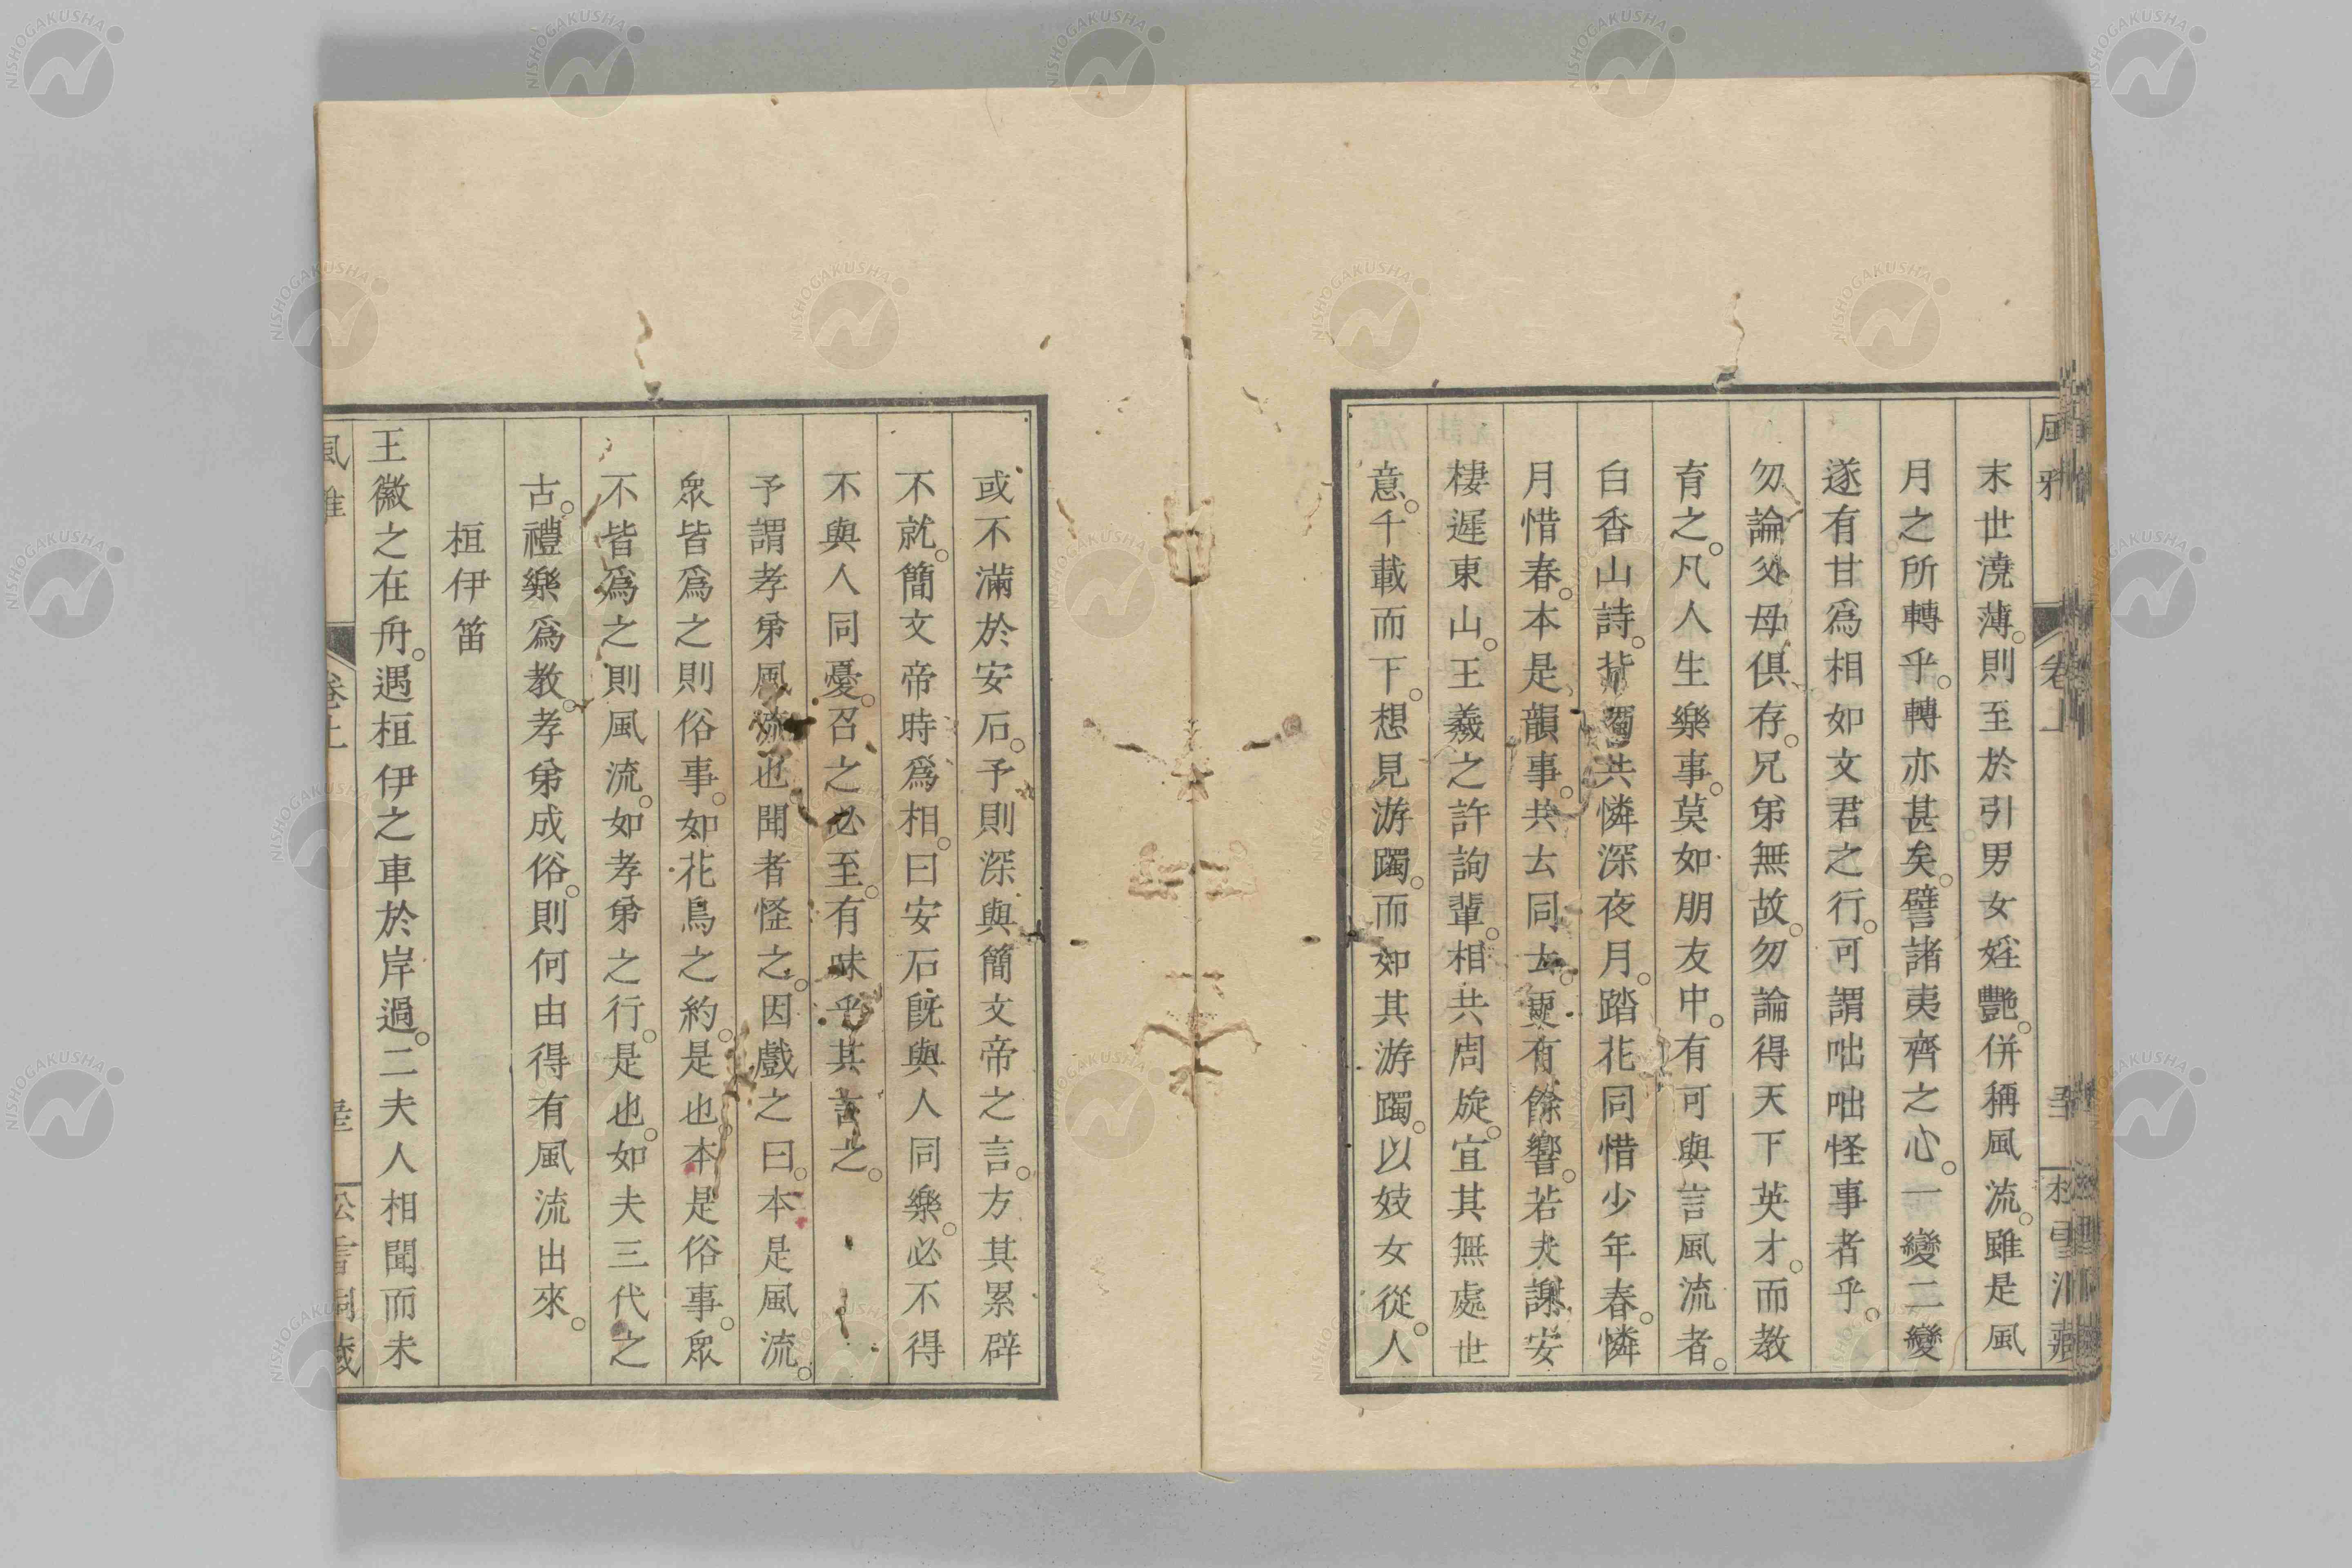 末世澆薄。則至於引男女婬艷。併稱風流。雖是風
月之所轉乎。轉亦甚矣。譬諸夷齊之心。一變二變
遂有甘爲相如文君之行。可謂咄咄怪事者乎。
勿論父母俱存。兄弟無故。勿論得天下英才。而教
育之。凡人生樂事。莫如朋友中。有可與言風流者。
白香山詩。背燭共憐深夜月。踏花同惜少年春。憐
月惜春。本是韻事。共去同去。更有餘響。若夫謝安
棲遲東山。王羲之許詢輩。相共周旋。宜其無處世
意。千載而下。想見游躅。而如其游躅。以妓女從。人
或不滿於安石。予則深與簡文帝之言。方其累辟
不就。簡文帝時爲相。曰安石既與人同樂。必不得
不與人同憂。召之必至。有味乎其言之。
予謂孝弟風流也聞者怪之。因戲之曰。本是風流。
衆皆爲之則俗事。如花鳥之約。是也。本是俗事。衆
不皆爲之則風流。如孝弟之行。是也。如夫三代之
古。禮樂爲教。孝弟成俗。則何由得有風流出來。
桓伊笛
王徽之在舟。遇桓伊之車於岸過。二夫人相聞而未
風雅
卷上
NISHOGAKUSHA